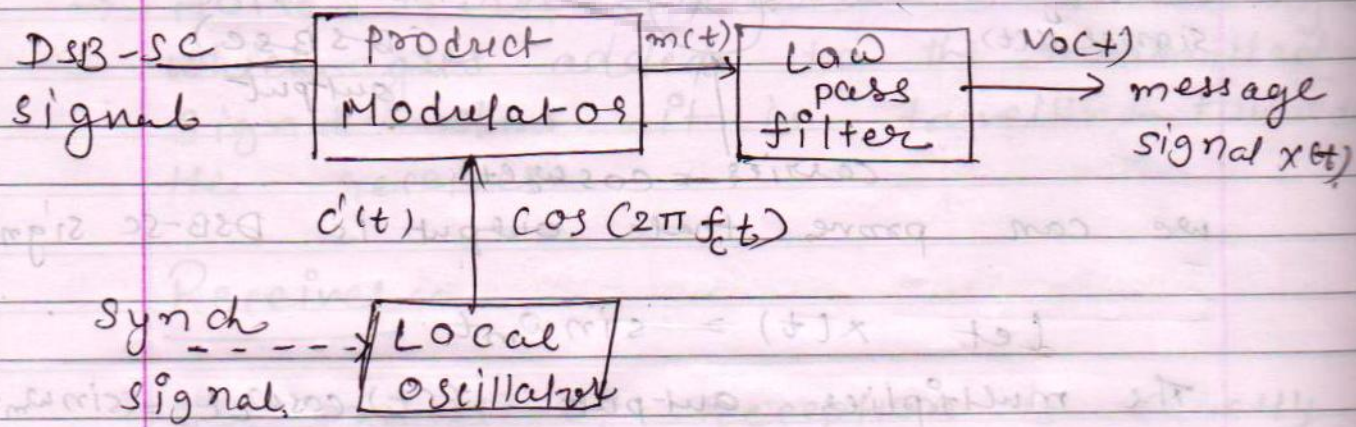 DSB-SC
signal
Product
Modulator
m(t)
Low
pass
filter
Vo(t)
message
signal x(t)
c'(t)
cos (2π fc t)
Synch
signal.
Local
oscillator